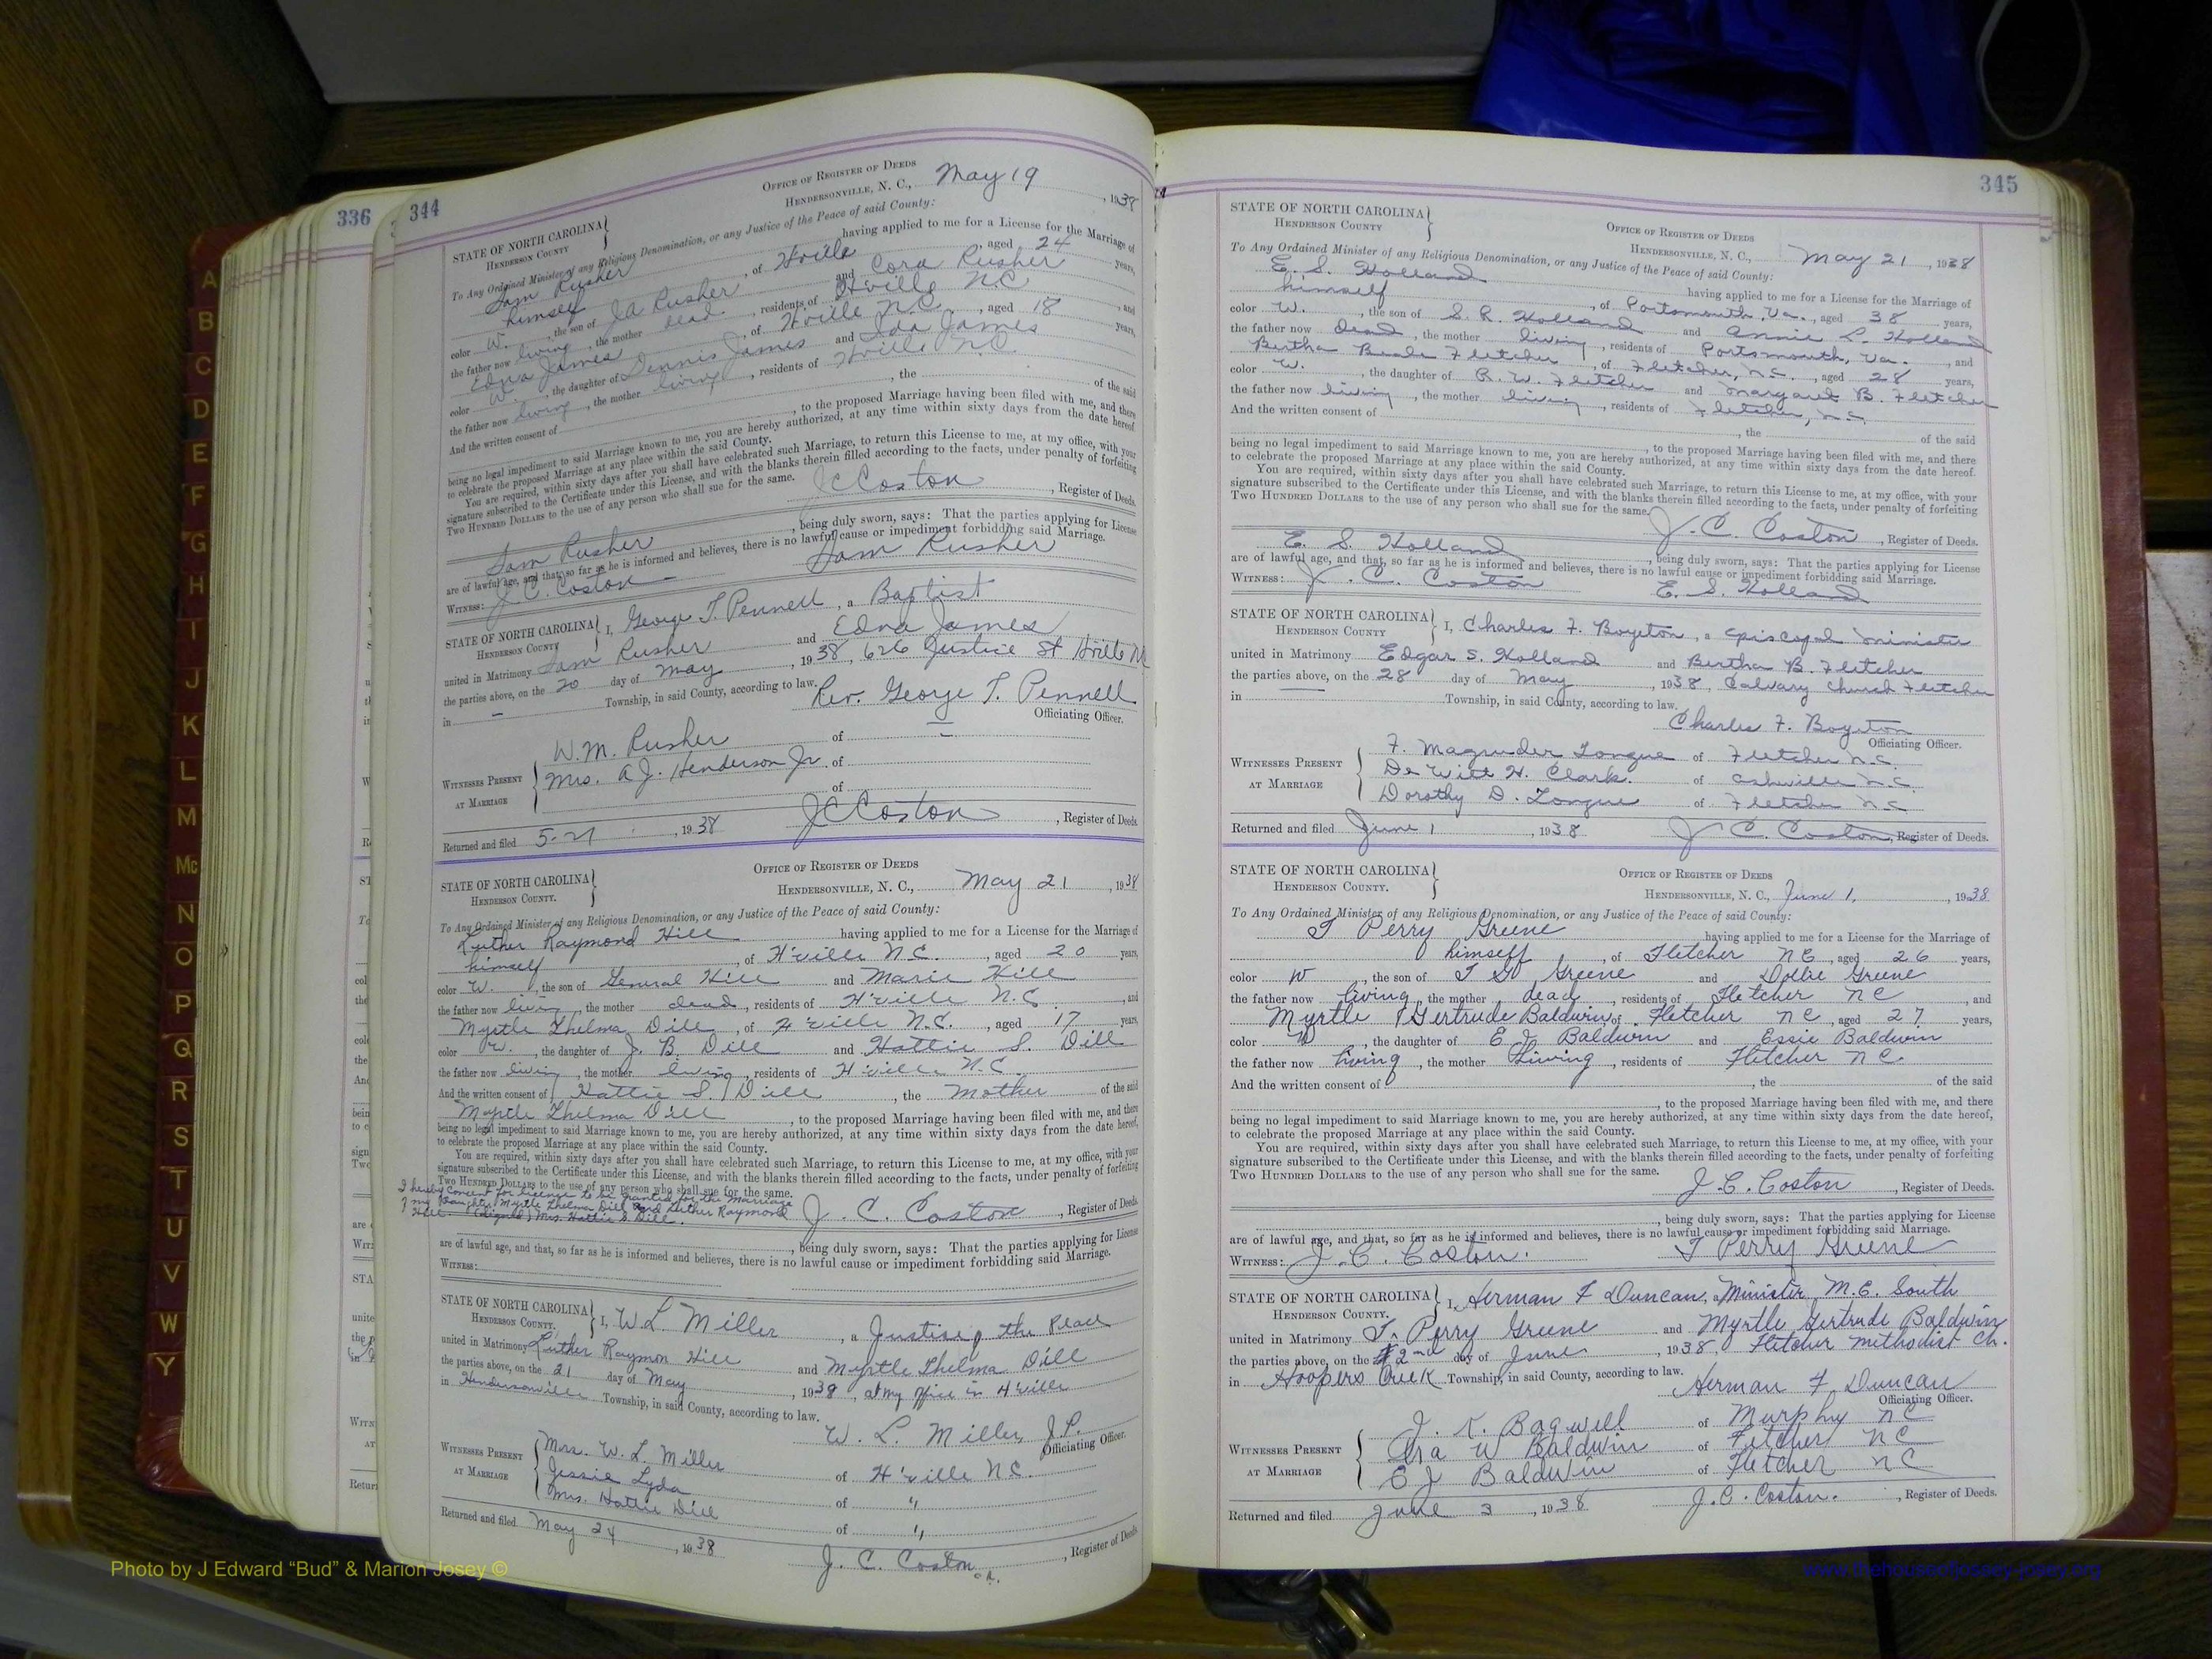 336
344
OFFICE OF REGISTER OF DEEDS
HENDERSONVILLE, N. C., May 19, 1938
STATE OF NORTH CAROLINA
HENDERSON COUNTY
To Any Ordained Minister of any Religious Denomination, or any Justice of the Peace of said County:
Sam Rusher having applied to me for a License for the Marriage of
himself, of H'ville, aged 24 years,
color W., the son of J A Rusher and Cora Rusher
the father now living, the mother dead, residents of H'ville N.C., and
Edna James, of H'ville N.C., aged 18 years,
color W., the daughter of Dennis James and Ida James
the father now living, the mother living, residents of H'ville N.C.
And the written consent of, the of the said
, to the proposed Marriage having been filed with me, and there
being no legal impediment to said Marriage known to me, you are hereby authorized, at any time within sixty days from the date hereof
to celebrate the proposed Marriage at any place within the said County.
You are required, within sixty days after you shall have celebrated such Marriage, to return this License to me, at my office, with your
signature subscribed to the Certificate under this License, and with the blanks therein filled according to the facts, under penalty of forfeiting
TWO HUNDRED DOLLARS to the use of any person who shall sue for the same.
J C Coston, Register of Deeds.
Sam Rusher, being duly sworn, says: That the parties applying for License
are of lawful age, and that, so far as he is informed and believes, there is no lawful cause or impediment forbidding said Marriage.
WITNESS: J. C. Coston Sam Rusher
STATE OF NORTH CAROLINA
HENDERSON COUNTY
I, George T. Pennell, a Baptist
united in Matrimony Sam Rusher and Edna James
the parties above, on the 20 day of May, 1938, 626 Justice St H'ville N
in - Township, in said County, according to law.
Rev. George T. Pennell
Officiating Officer.
WITNESSES PRESENT AT MARRIAGE
W.M. Rusher of -
Mrs. A.J. Henderson Jr. of
of
Returned and filed 5-21, 1938 J C Coston, Register of Deeds.
OFFICE OF REGISTER OF DEEDS
STATE OF NORTH CAROLINA
HENDERSON COUNTY.
HENDERSONVILLE, N. C., May 21, 1938
To Any Ordained Minister of any Religious Denomination, or any Justice of the Peace of said County:
Luther Raymond Hill having applied to me for a License for the Marriage of
himself, of H'ville N.C., aged 20 years,
color W., the son of General Hill and Marie Hill
the father now living, the mother dead, residents of H'ville N.C., and
Myrtle Thelma Dill, of H'ville N.C., aged 17 years,
color W., the daughter of J. B. Dill and Hattie S. Dill
the father now living, the mother living, residents of H'ville N.C.
And the written consent of Hattie S. Dill, the Mother of the said
Myrtle Thelma Dill, to the proposed Marriage having been filed with me, and there
being no legal impediment to said Marriage known to me, you are hereby authorized, at any time within sixty days from the date hereof,
to celebrate the proposed Marriage at any place within the said County.
You are required, within sixty days after you shall have celebrated such Marriage, to return this License to me, at my office, with your
signature subscribed to the Certificate under this License, and with the blanks therein filled according to the facts, under penalty of forfeiting
TWO HUNDRED DOLLARS to the use of any person who shall sue for the same.
I hereby consent for license to be granted for the marriage
of my daughter Myrtle Thelma Dill and Luther Raymond
Hill. (Signed) Mrs. Hattie S. Dill.
J. C. Coston, Register of Deeds
, being duly sworn, says: That the parties applying for License
are of lawful age, and that, so far as he is informed and believes, there is no lawful cause or impediment forbidding said Marriage.
WITNESS:
STATE OF NORTH CAROLINA
HENDERSON COUNTY.
I, W L Miller, a Justice of the Peace
united in Matrimony Luther Raymon Hill and Myrtle Thelma Dill
the parties above, on the 21 day of May, 1938, at my office in H'ville
in Hendersonville Township, in said County, according to law.
W. L. Miller, J.P.
Officiating Officer.
WITNESSES PRESENT AT MARRIAGE
Mrs. W. L. Miller of H'ville N.C.
Jessie Lyda of "
Mrs. Hattie Dill of "
Returned and filed May 24, 1938 J. C. Coston, Register of Deeds
345
STATE OF NORTH CAROLINA
HENDERSON COUNTY
OFFICE OF REGISTER OF DEEDS
HENDERSONVILLE, N. C., May 21, 1938
To Any Ordained Minister of any Religious Denomination, or any Justice of the Peace of said County:
E. S. Holland having applied to me for a License for the Marriage of
himself, of Portsmouth, Va., aged 38 years,
color W., the son of S. R. Holland and Annie L. Holland
the father now dead, the mother living, residents of Portsmouth, Va., and
Bertha Beale Fletcher, of Fletcher, N.C., aged 28 years,
color W., the daughter of R. W. Fletcher and Margaret B. Fletcher
the father now living, the mother living, residents of Fletcher, N.C.
And the written consent of, the of the said
, to the proposed Marriage having been filed with me, and there
being no legal impediment to said Marriage known to me, you are hereby authorized, at any time within sixty days from the date hereof.
to celebrate the proposed Marriage at any place within the said County.
You are required, within sixty days after you shall have celebrated such Marriage, to return this License to me, at my office, with your
signature subscribed to the Certificate under this License, and with the blanks therein filled according to the facts, under penalty of forfeiting
TWO HUNDRED DOLLARS to the use of any person who shall sue for the same.
J. C. Coston, Register of Deeds.
E. S. Holland, being duly sworn, says: That the parties applying for License
are of lawful age, and that, so far as he is informed and believes, there is no lawful cause or impediment forbidding said Marriage.
WITNESS: J. C. Coston E. S. Holland
STATE OF NORTH CAROLINA
HENDERSON COUNTY
I, Charles F. Boyeton, a Episcopal Minister
united in Matrimony Edgar S. Holland and Bertha B. Fletcher
the parties above, on the 28 day of May, 1938, Calvary Church Fletcher
in Township, in said County, according to law.
Charles F. Boyeton
Officiating Officer.
WITNESSES PRESENT AT MARRIAGE
F. Magruder Tongue of Fletcher N.C.
DeWitt H. Clark. of Asheville N.C.
Dorothy D. Tongue of Fletcher N.C.
Returned and filed June 1, 1938 J C. Coston, Register of Deeds.
STATE OF NORTH CAROLINA
HENDERSON COUNTY.
OFFICE OF REGISTER OF DEEDS
HENDERSONVILLE, N. C., June 1, 1938
To Any Ordained Minister of any Religious Denomination, or any Justice of the Peace of said County:
T Perry Greene having applied to me for a License for the Marriage of
himself, of Fletcher NC, aged 26 years,
color W, the son of T G Greene and Dollie Greene
the father now living, the mother dead, residents of Fletcher NC, and
Myrtle Gertrude Baldwin, of Fletcher NC, aged 27 years,
color W, the daughter of E J Baldwin and Essie Baldwin
the father now living, the mother living, residents of Fletcher N C.
And the written consent of, the of the said
, to the proposed Marriage having been filed with me, and there
being no legal impediment to said Marriage known to me, you are hereby authorized, at any time within sixty days from the date hereof,
to celebrate the proposed Marriage at any place within the said County.
You are required, within sixty days after you shall have celebrated such Marriage, to return this License to me, at my office, with your
signature subscribed to the Certificate under this License, and with the blanks therein filled according to the facts, under penalty of forfeiting
TWO HUNDRED DOLLARS to the use of any person who shall sue for the same.
J. C. Coston, Register of Deeds.
, being duly sworn, says: That the parties applying for License
are of lawful age, and that, so far as he is informed and believes, there is no lawful cause or impediment forbidding said Marriage.
WITNESS: J. C. Coston. T Perry Greene
STATE OF NORTH CAROLINA
HENDERSON COUNTY.
I, Herman F Duncan, a Minister M.E. South
united in Matrimony T. Perry Greene and Myrtle Gertrude Baldwin
the parties above, on the 2nd day of June, 1938, Fletcher Methodist Ch.
in Hoopers Creek Township, in said County, according to law.
Herman F Duncan
Officiating Officer.
WITNESSES PRESENT AT MARRIAGE
J. K. Bagwell of Murphy NC
Ira W Baldwin of Fletcher NC
E J Baldwin of Fletcher NC
Returned and filed June 3, 1938 J. C. Coston., Register of Deeds.
A
B
C
D
E
F
G
H
I
J
K
L
M
Mc
N
O
P
Q
R
S
T
U
V
W
Y
Photo by J Edward “Bud” & Marion Josey ©
www.thehouseofjossey-josey.org